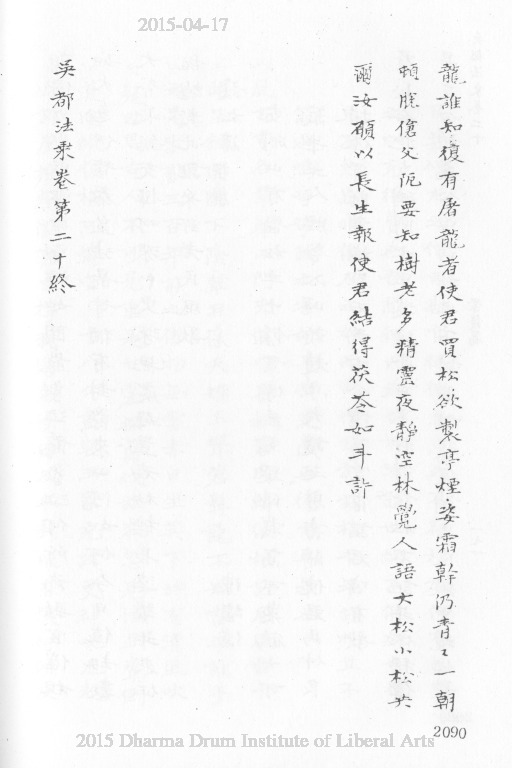 2015-04-17
龍誰知復有屠龍者使君買松欲製亭煙姿霜幹仍青〻一朝
頓脫傖父阨要知樹老多精靈夜靜空林覺人語大松小松共
爾汝願以長生報使君結得茯苓如斗許
吳都法乘卷第二十終
2090
2015 Dharma Drum Institute of Liberal Arts